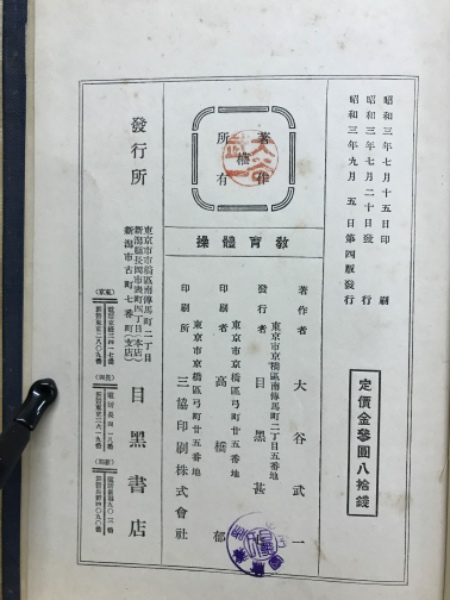 昭和三年七月十五日印刷
昭和三年七月二十日發行
昭和三年九月五日第四版發行
定價金參圓八拾錢
著作所有
教育體操
著作者 大谷武一
東京市京橋區南傳馬町二丁目五番地
發行者 目黑甚
東京市京橋區弓町廿五番地
印刷者 高橋郁
東京市京橋區弓町廿五番地
印刷所 三協印刷株式會社
發行所
東京市京橋區南傳馬町二丁目
新潟縣長岡市表町四丁目(本店)
新潟市古町七番町(支店)
目黑書店